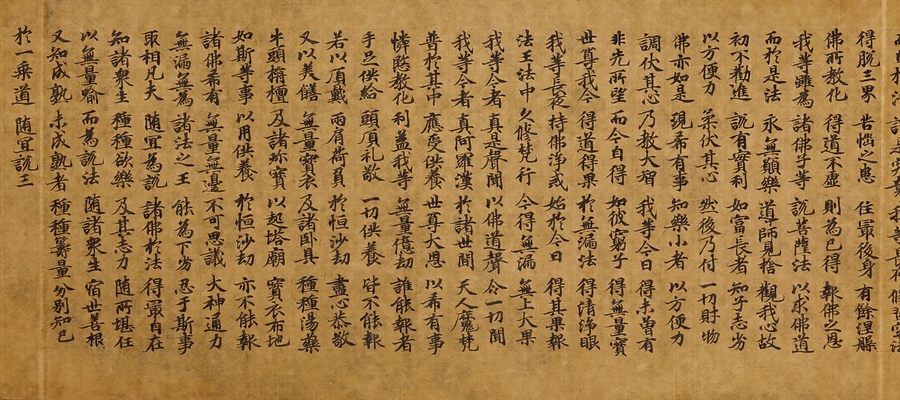 得脱三界 苦惱之患 住最後身 有餘涅槃
佛所教化 得道不虛 則為已得 報佛之恩
我等雖為 諸佛子等 說菩薩法 以求佛道
而於是法 永無願樂 導師見捨 觀我心故
初不勸進 說有實利 如富長者 知子志劣
以方便力 柔伏其心 然後乃付 一切財物
佛亦如是 現希有事 知樂小者 以方便力
調伏其心 乃教大智 我等今日 得未曾有
非先所望 而今自得 如彼窮子 得無量寶
世尊我今 得道得果 於無漏法 得清淨眼
我等長夜 持佛淨戒 始於今日 得其果報
法王法中 久修梵行 今得無漏 無上大果
我等今者 真是聲聞 以佛道聲 令一切聞
我等今者 真阿羅漢 於諸世間 天人魔梵
普於其中 應受供養 世尊大恩 以希有事
憐愍教化 利益我等 無量億劫 誰能報者
手足供給 頭頂礼敬 一切供養 皆不能報
若以頂戴 兩肩荷負 於恒沙劫 盡心恭敬
又以美饍 無量寶衣 及諸臥具 種種湯藥
牛頭栴檀 及諸珎寶 以起塔廟 寶衣布地
如斯等事 以用供養 於恒沙劫 亦不能報
諸佛希有 無量無邊 不可思議 大神通力
無漏無為 諸法之王 能為下劣 忍于斯事
取相凡夫 隨宜為說 諸佛於法 得最自在
知諸衆生 種種欲樂 及其志力 隨所堪任
以無量喻 而為說法 隨諸衆生 宿世善根
又知成熟 未成熟者 種種籌量 分別知已
於一乘道 隨宜說三